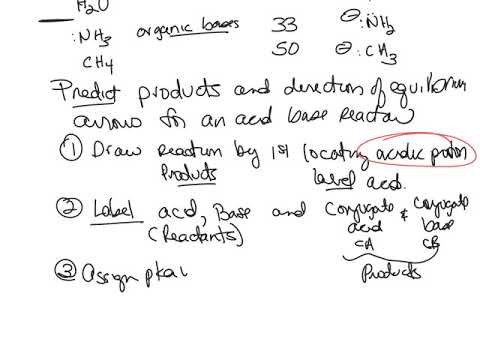 H2O
:NH3 organic bases 33 ⊖:NH2
CH4 50 ⊖:CH3
Predict products and direction of equilibrium
arrows for an acid base Reaction
① Draw Reaction by 1st locating acidic proton
Products label acid.
② Label acid, Base and Conjugate & Conjugate
(Reactants) acid base
CA CB
③ Assign pKa Products